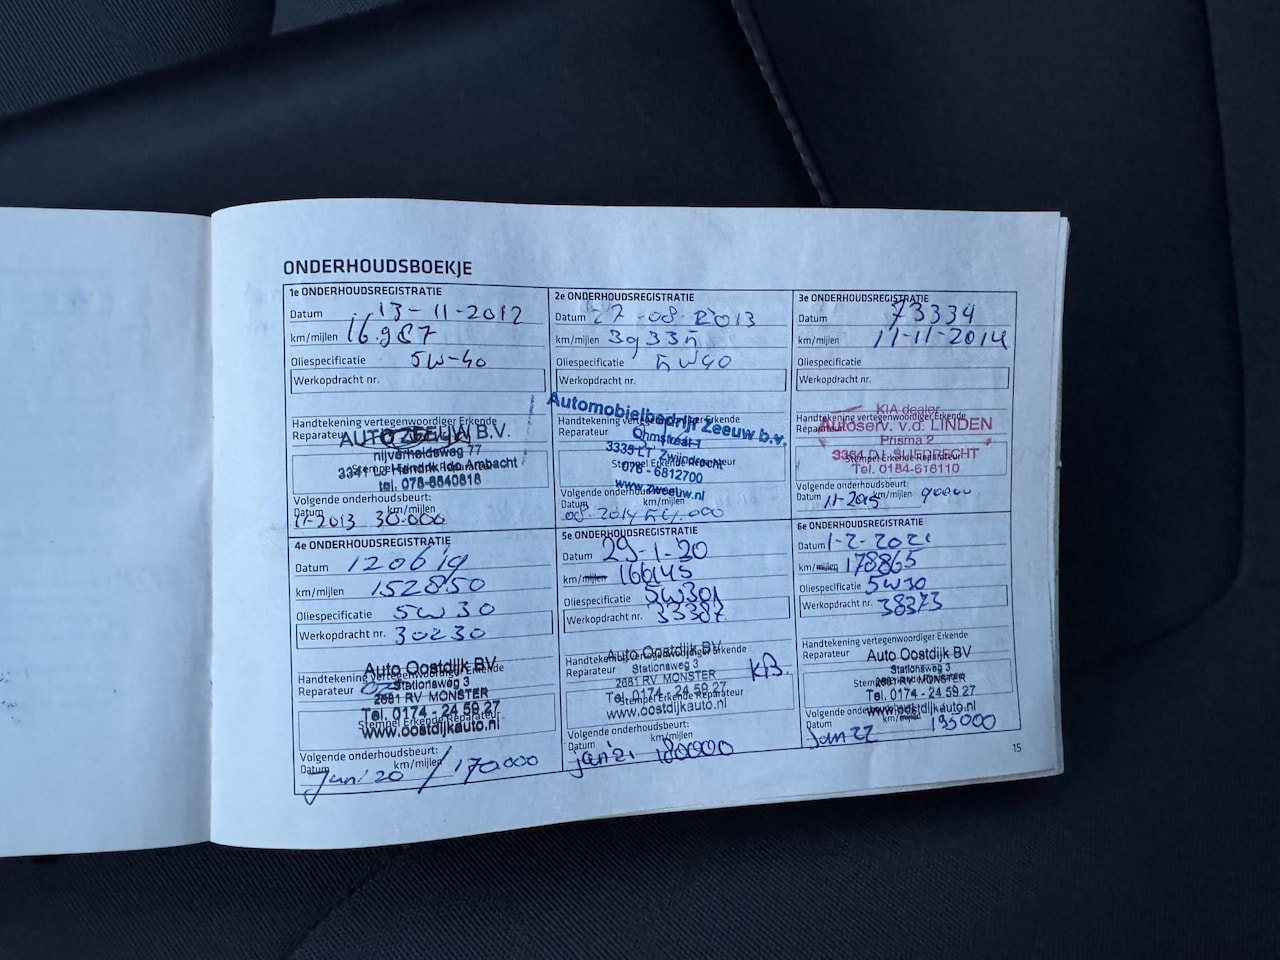 ONDERHOUDSBOEKJE
1e ONDERHOUDSREGISTRATIE
Datum 13-11-2012
km/mijlen 16.987
Oliespecificatie 5W-40
Werkopdracht nr.
Handtekening vertegenwoordiger Erkende
Reparateur
AUTO ZEEUW B.V.
nijverheidsweg 77
3341 LJ Hendrik Ido Ambacht
Stempel Erkende Reparateur
tel. 078-6840818
Volgende onderhoudsbeurt:
Datum km/mijlen
11-2013 30.000
2e ONDERHOUDSREGISTRATIE
Datum 27-08-2013
km/mijlen
Oliespecificatie 5W40
Werkopdracht nr.
Handtekening vertegenwoordiger Erkende
Reparateur
Automobielbedrijf Zeeuw b.v.
Ohmstraat 1
3335 LT Zwijndrecht
Stempel Erkende Reparateur
078 - 6812700
www.zweeuw.nl
Volgende onderhoudsbeurt:
Datum km/mijlen
08-2014 54.000
3e ONDERHOUDSREGISTRATIE
Datum 73334
km/mijlen 11-11-2014
Oliespecificatie
Werkopdracht nr.
Handtekening vertegenwoordiger Erkende
Reparateur
KIA dealer
Autoserv. v.d. LINDEN
Prisma 2
3364 DJ SLIEDRECHT
Stempel Erkende Reparateur
Tel. 0184-616110
Volgende onderhoudsbeurt:
Datum 11-2015 km/mijlen 90000
4e ONDERHOUDSREGISTRATIE
Datum 120619
km/mijlen 152850
Oliespecificatie 5W30
Werkopdracht nr. 30230
Handtekening vertegenwoordiger Erkende
Reparateur
Auto Oostdijk BV
Stationsweg 3
2681 RV MONSTER
Tel. 0174 - 24 59 27
Stempel Erkende Reparateur
www.oostdijkauto.nl
Volgende onderhoudsbeurt:
Datum km/mijlen
Juni '20 / 170.000
5e ONDERHOUDSREGISTRATIE
Datum 29-1-20
km/mijlen 166145
Oliespecificatie 5W30
Werkopdracht nr. 33387
Handtekening vertegenwoordiger Erkende
Reparateur
Auto Oostdijk BV
Stationsweg 3
2681 RV MONSTER
KB.
Tel. 0174 - 24 59 27
Stempel Erkende Reparateur
www.oostdijkauto.nl
Volgende onderhoudsbeurt:
Datum km/mijlen
jan '21 180000
6e ONDERHOUDSREGISTRATIE
Datum 1-2-2021
km/mijlen 178865
Oliespecificatie 5W30
Werkopdracht nr. 38373
Handtekening vertegenwoordiger Erkende
Reparateur
Auto Oostdijk BV
Stationsweg 3
2681 RV MONSTER
Stempel Erkende Reparateur
Tel. 0174 - 24 59 27
www.oostdijkauto.nl
Volgende onderhoudsbeurt:
Datum km/mijlen
Jan 22 195000
15